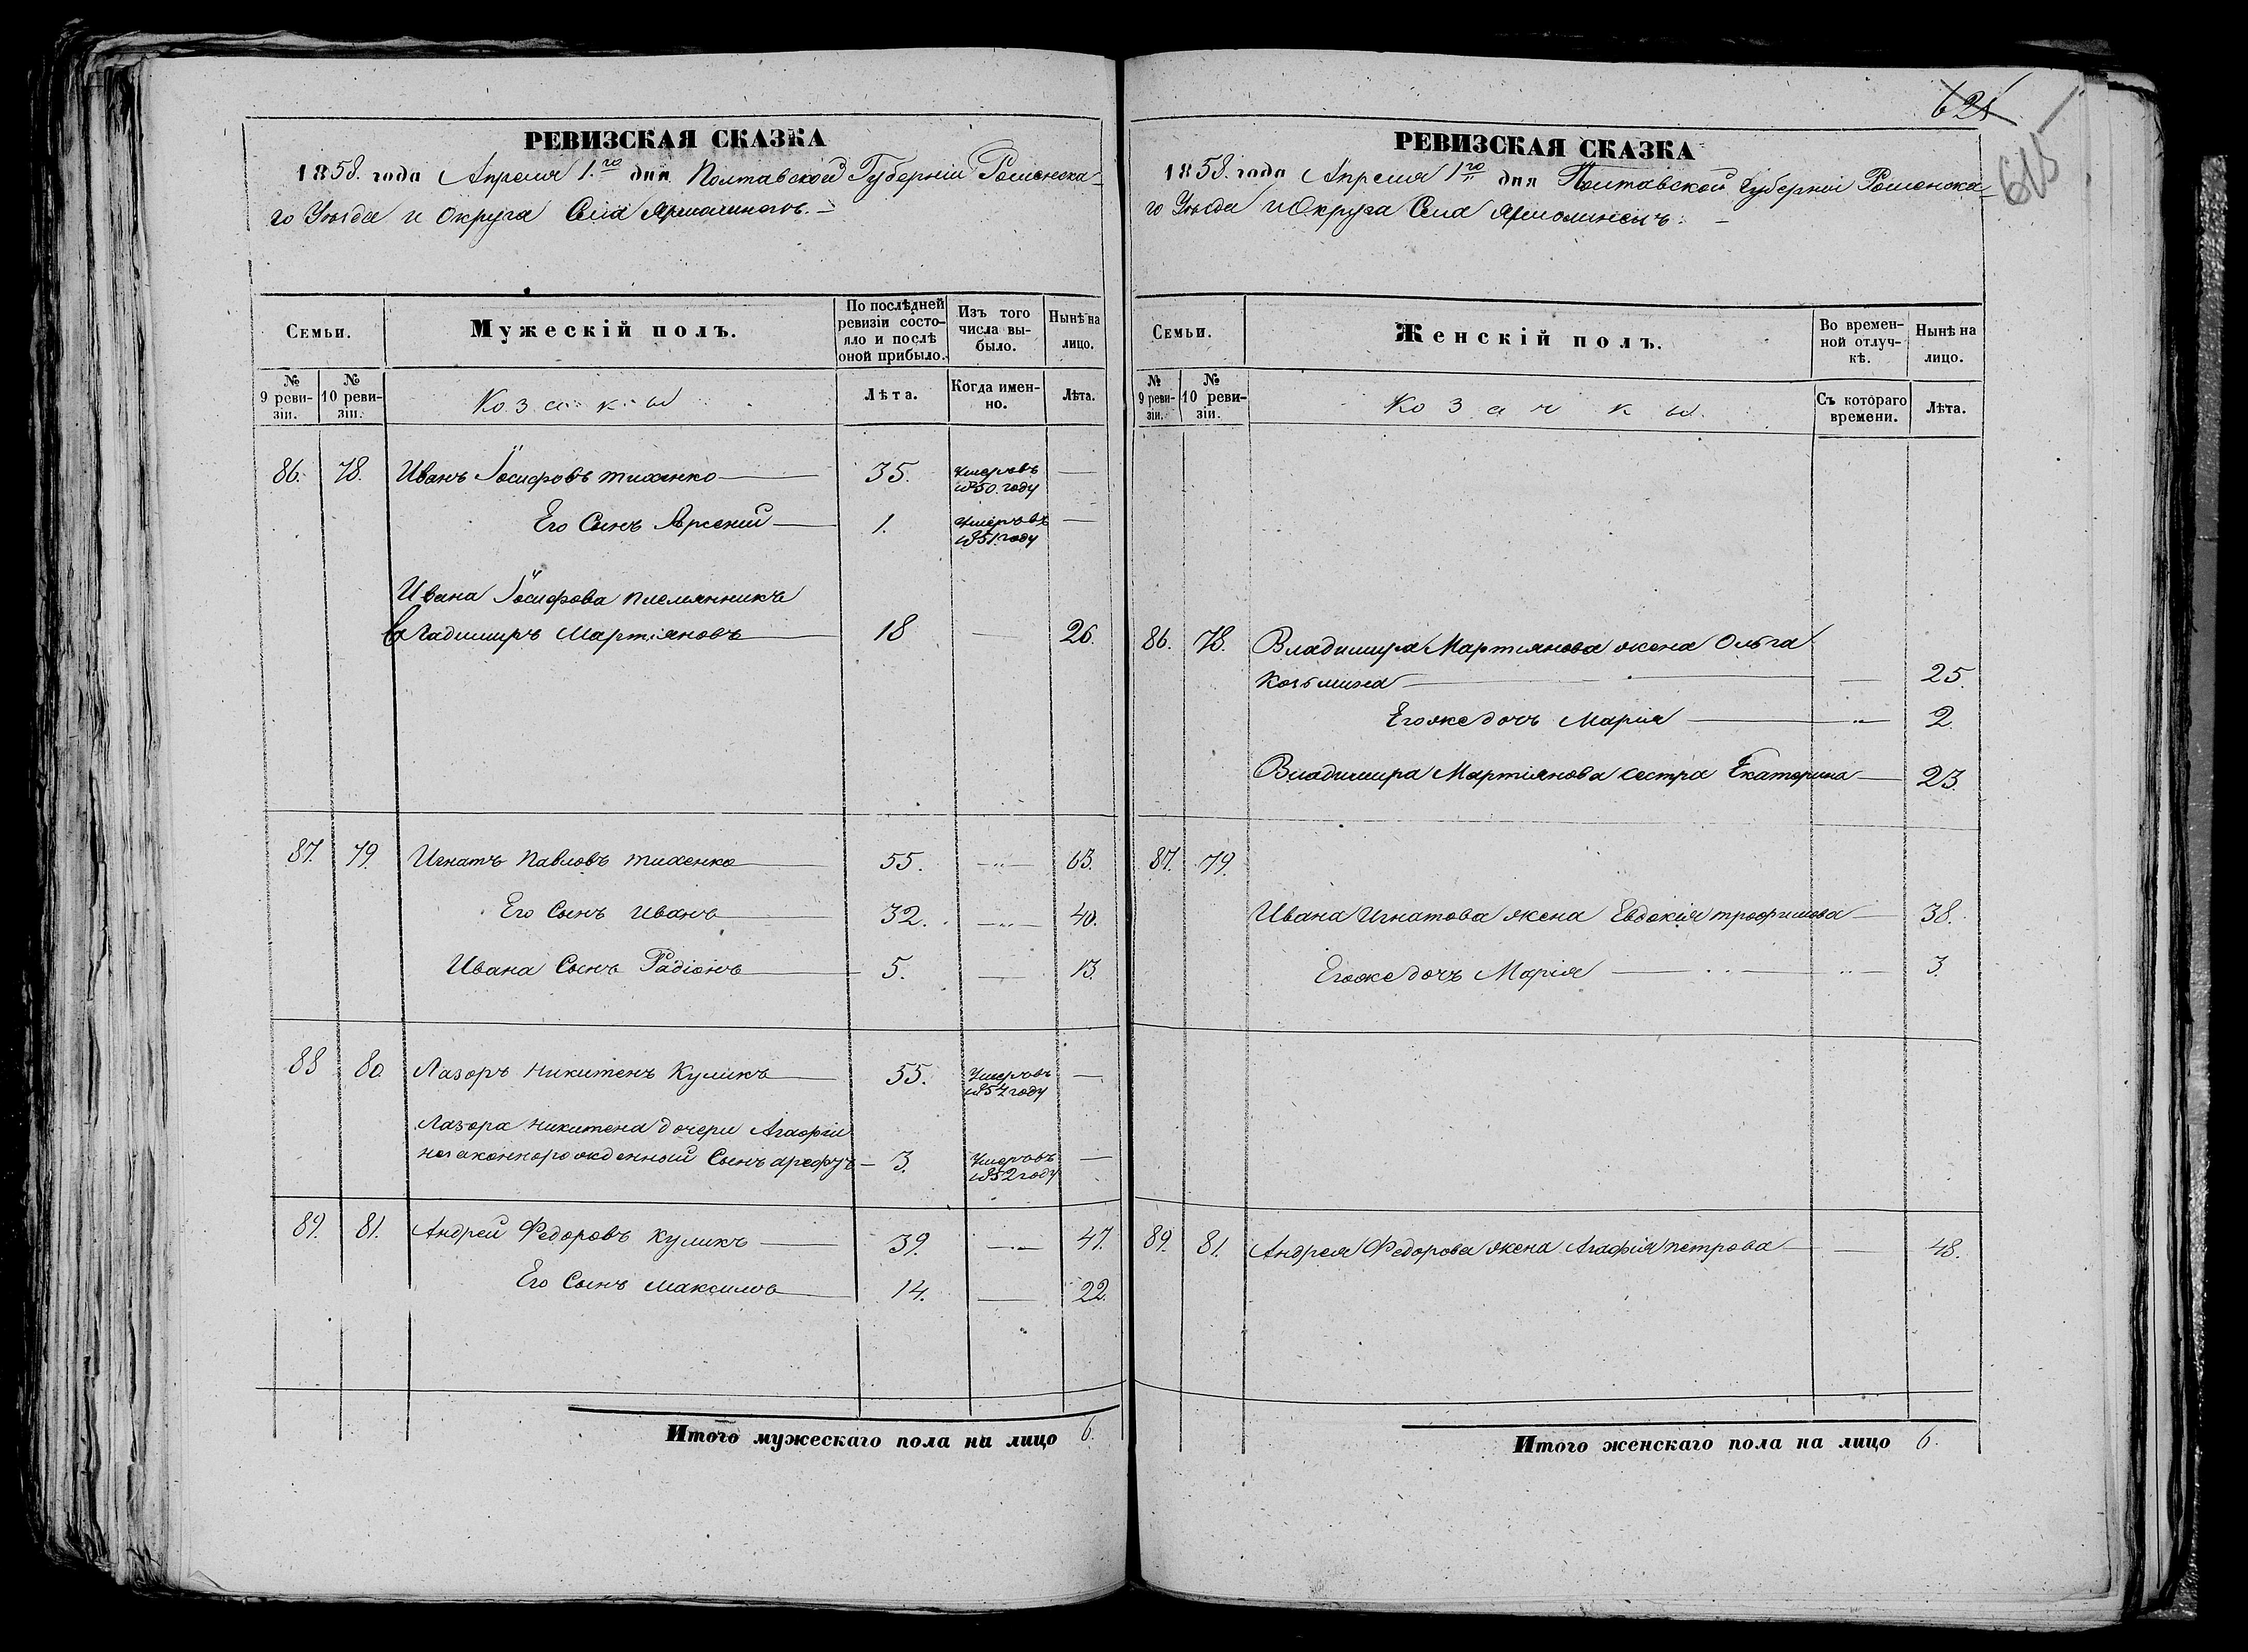 РЕВИЗСКАЯ СКАЗКА
1858. года Апреля 1.го дня Полтавской Губерніи Роменска-
го Уѣзда и Округа Села Ярмолинецъ.
Семьи.
Мужескій полъ.
По послѣдней ревизіи состояло и послѣ оной прибыло.
Изъ того числа выбыло.
Нынѣ на лицо.
№ 9 ревизіи.
№ 10 ревизіи.
Козаки
Лѣта.
Когда именно.
Лѣта.
86. 78. Иванъ Іосифовъ Тихенко 35. Умеръ въ 1850. году
Его Сынъ Арсеній 1. Умеръ въ 1851. году
Ивана Іосифова племянникъ
Владимиръ Мартіяновъ 18 26.
87. 79. Игнатъ Павловъ Тихенко 55. 63.
Его Сынъ Иванъ 32. 40.
Ивана Сынъ Радіонъ 5. 13.
88 80. Лазоръ Никитенъ Куликъ 55. Умеръ въ 1854 году
Лазора Никитена дочери Агафіи
незаконнорожденный Сынъ 3. Умеръ въ 1852 году
89. 81. Андрей Федоровъ Куликъ 39. 47.
Его Сынъ Максимъ 14. 22.
Итого мужескаго пола на лицо 6.
625
615
РЕВИЗСКАЯ СКАЗКА
1858. года Апреля 1го дня Полтавской Губерніи Роменска-
го Уѣзда и Округа Села Ярмолинецъ.
Семьи.
Женскій полъ.
Во временной отлучкѣ.
Нынѣ на лицо.
№ 9 ревизіи.
№ 10 ревизіи.
Козачки.
Съ котораго времени.
Лѣта.
86. 78. Владимира Мартіянова жена Ольга
Козьмина 25.
Его же дочь Марія 2.
Владимира Мартіянова сестра Екатерина 23.
87. 79.
Ивана Игнатова жена Евдокія Трофимова 38.
Его же дочь Марія 3.
89. 81. Андрея Федорова жена Агафія Петрова 48.
Итого женскаго пола на лицо 6.